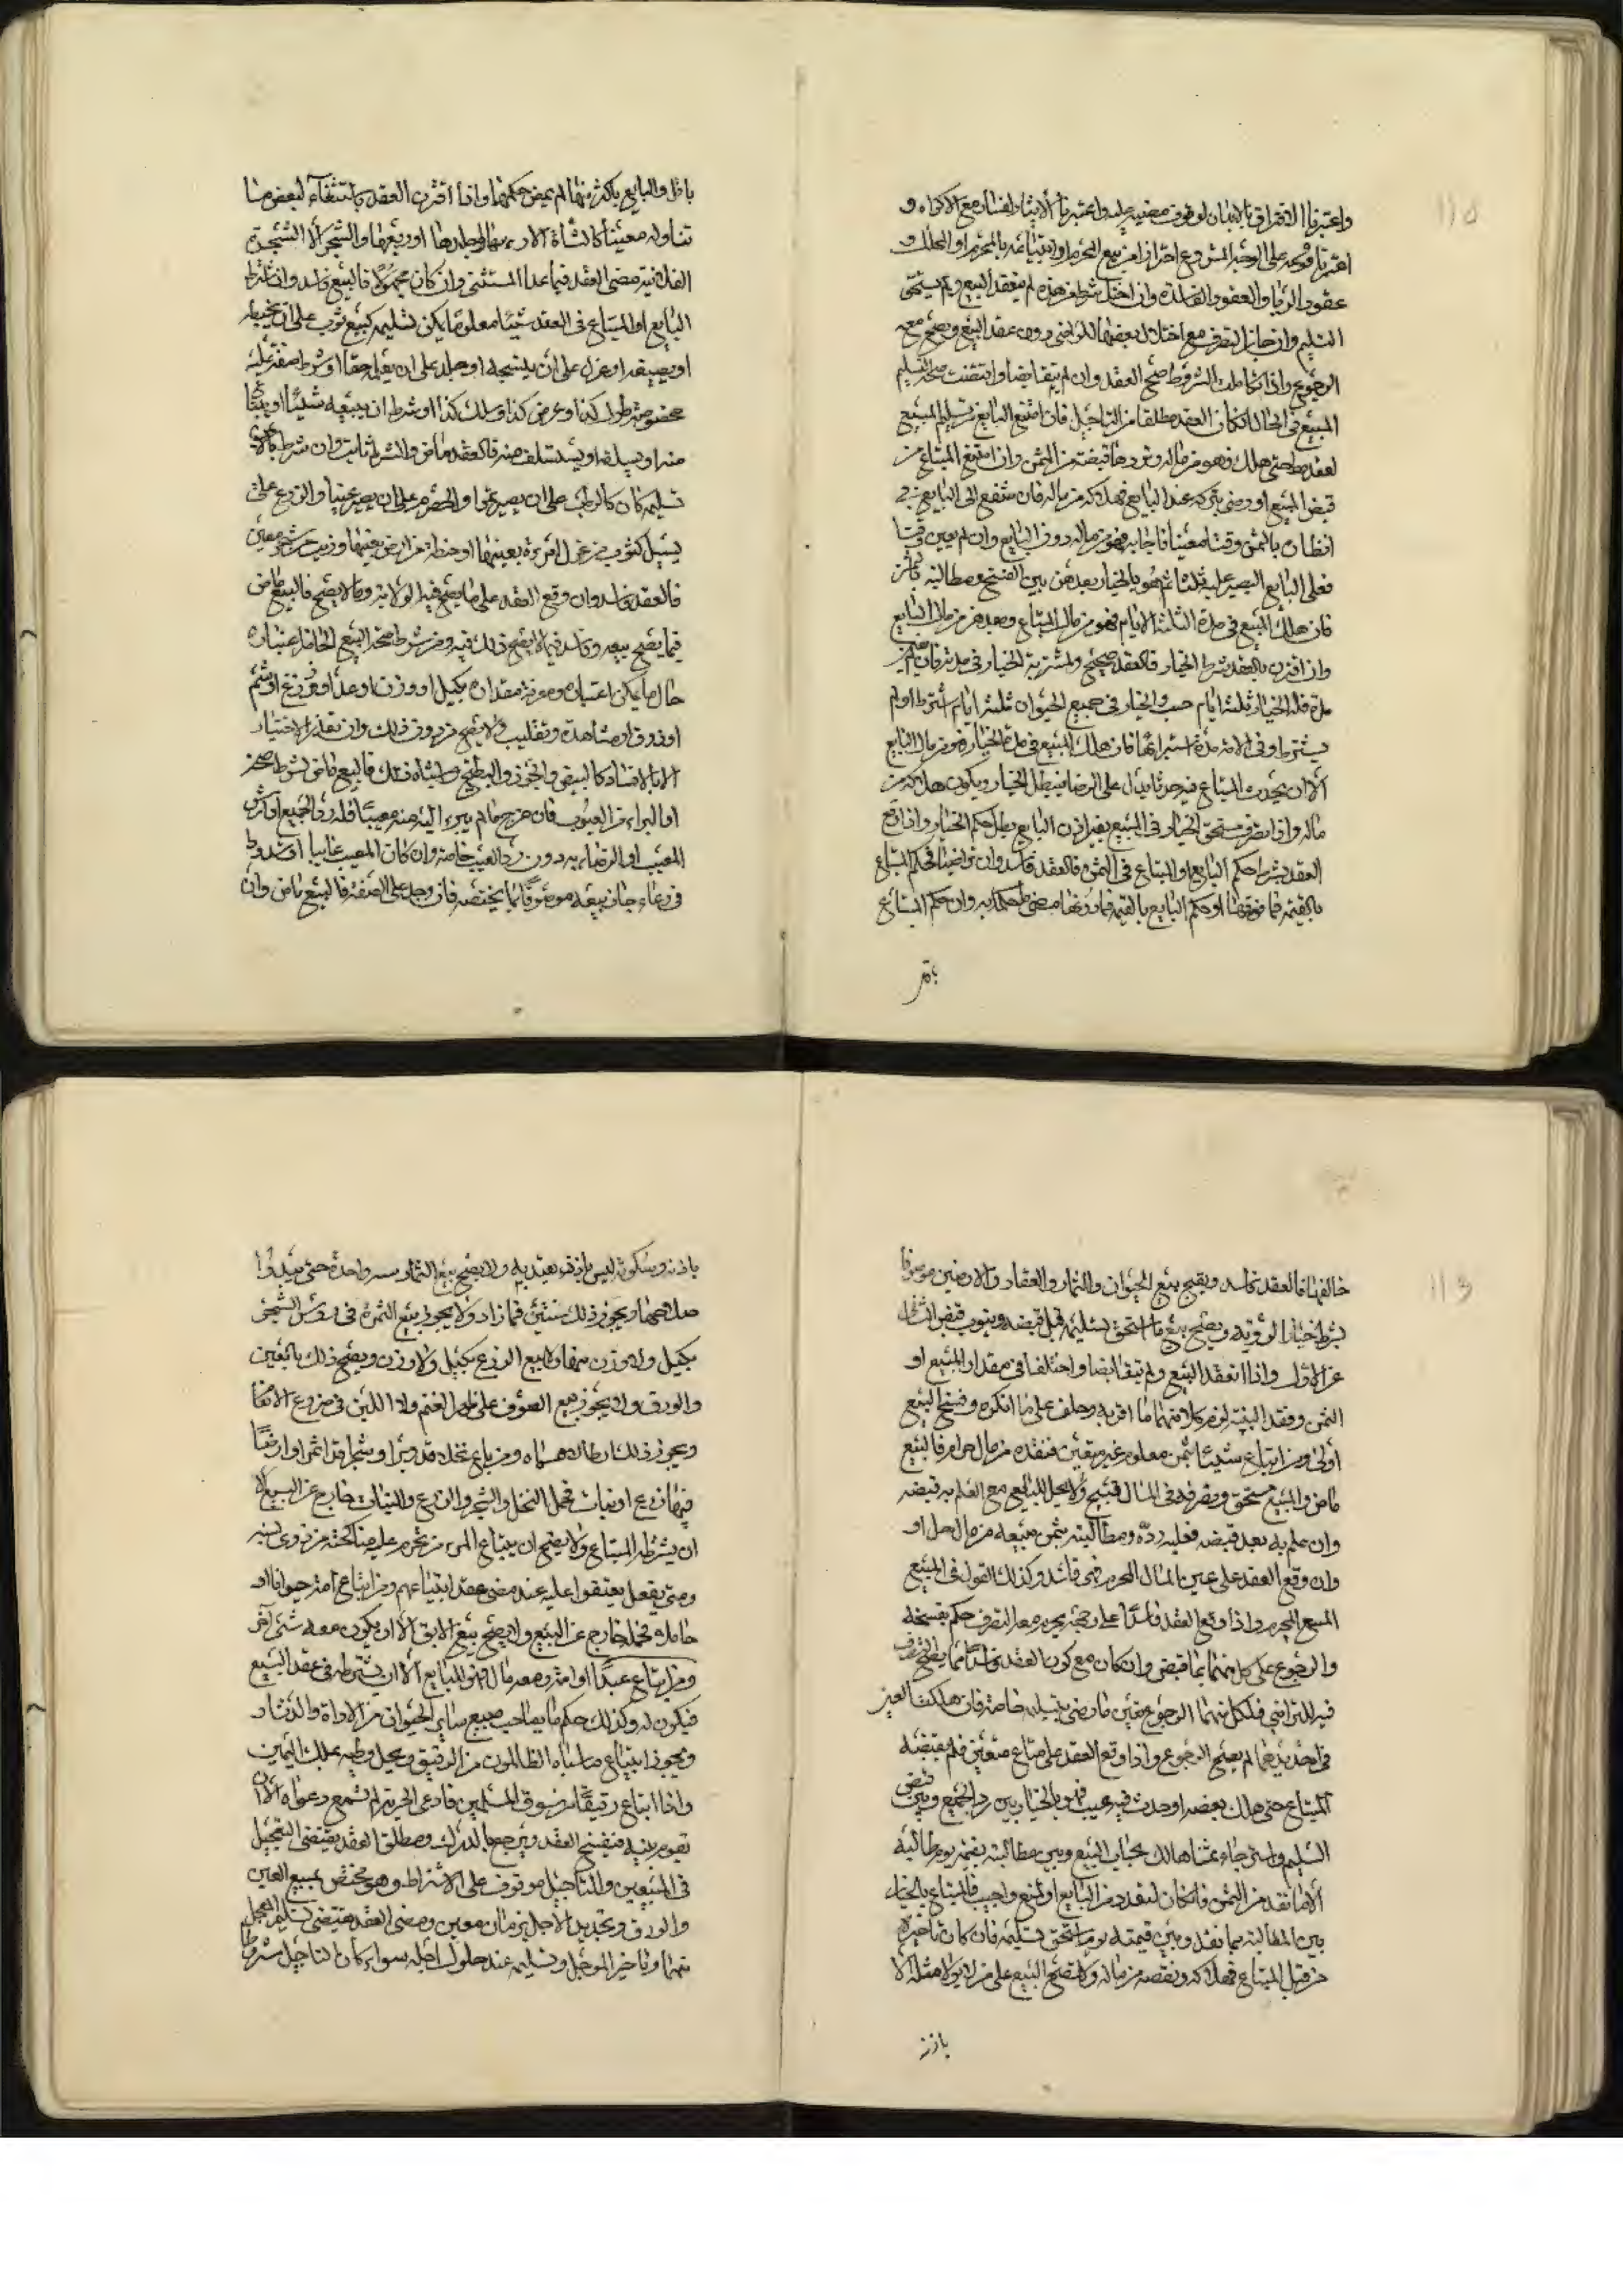 واعتبرنا الافتراق بالابدان لوقوف مضيه عليه واعتبرنا الايثار لفساده مع الاكراه و
اعتبرنا وقوعه على الوجه المشروع احترازا من بيع المحرم او ابتياعه بالمحرم او المحلل و
عقود الربا والعقود الفاسدة وان اختل شرط من هذه لم ينعقد البيع ولم يستحق
التسليم وان جاز التصرف مع اختلال بعضها للتراضي دون عقد البيع ويصح معه
الرجوع واذا تكاملت الشروط صح العقد وان لم يتقابضا واقتضت صحته تسليم
المبيع في الحال ان كان العقد مطلقا من التاجيل فان امتنع البايع من تسليم المبيع
لعقده حتى هلك فهو من ماله وترد ما قبضه من الثمن وان امتنع المبتاع من
قبض المبيع او رضي بتركه عند البايع فهلاكه من ماله فان شفع الى البايع في
انظاره بالثمن وقتا معينا فاجابه فهو من ماله دون البايع وان لم يعين وقتا
فعلى البايع الصبر عليه ثلثا ثم هو بالخيار بعدهن بين الفسخ ومطالبته بالثمن
فان هلك المبيع في مدة الثلثة الايام فهو من مال المبتاع وبعدهن من مال البايع
وان اقترن بالعقد شرط الخيار فالعقد صحيح ولمشترطه الخيار في مدته فان لم يعين
مدة فله الخيار ثلثة ايام حسب والخيار في جميع الحيوان ثلثة ايام اشترط او لم
يشترط وفي الامة مدة استبرائها فان هلك المبيع في مدة الخيار فهو من مال البايع
الا ان يحدث المبتاع فيه حدثا يدل على الرضا فيبطل الخيار ويكون هلاكه من
ماله واذا تصرف مستحق الخيار في المبيع بغير اذن البايع بطل حكم الخيار واذا وقع
العقد بشرط حكم البايع او المبتاع في الثمن فالعقد فاسد وان تراضيا فحكم المبتاع
بالقيمة فما فوقها او حكم البايع بالقيمة فما دونها مضى ما حكما به وان حكم المبتاع
باقل
باقل والبايع باكثر منها لم يمض حكمهما واذا اقترن العقد باستثناء لبعض ما
تناوله معينا كالشاة الا راسها او جلدها او ربعها والشجر الا الشجرة
الفلانية مضى العقد فيما عدا المستثنى وان كان مجهولا فالبيع فاسد وان شرط
البايع او المبتاع في العقد شيئا معلوما يمكن تسليمه كبيع ثوب على ان يخيطه
او يصبغه او غزل على ان ينسجه او جلد على ان يعمله خفا او شرط صفقة عليه
مخصوصة طول كذا وعرض كذا وسلك كذا او شرط ان يبيعه شيئا او يبتاع
منه او يسلفه او يستسلف منه فالعقد ماض والشرط ثابت وان شرط ما لا يمكن
تسليمه كان كالرطب على ان يصير تمرا والحصرم على ان يصير عنبا والزرع على ان
يسبل كثوب من غزل امرءة بعينها او حنطة من ارض بعينها وزيت من شجر معين
فالعقد فاسد وان وقع العقد على ما يصح فيه الولاية وما لا يصح فالبيع ماض
فيما يصح بيعه وفاسد فيما لا يصح ذلك فيه ومن شرط صحة البيع الحاضر اعتباره
حال ما يمكن اعتباره ومعرفة مقداره بكيل او وزن او عد او ذرع او شم
او ذوق او مشاهدة وتقليب ولا يصح من دون ذلك وان تعذر الاختبار
الا بالافساد كالبيض والجوز والبطيخ واشباه ذلك فالبيع ماض بشرط الصحة
او البراءة من العيوب فان خرج ما لم يبرء اليه منه معيبا فله رد الجميع او ارش
المعيب او الرضاء به دون رد المعيب خاصة وان كان المبيع غايبا او مشدودا
في وعاء جاز بيعه موصوفا بما يخصه فان وجد على الصفة فالبيع ماض وان
خالفها فالعقد فاسد ويصح بيع الحيوان والثمار والعقار والارضين موصوفا
بشرط خيار الرؤية ويصح بيع ما استحق تسليمه قبل قبضه وينوب قبض الثاني
عن الاول واذا انعقد البيع ولم يتقابضا واختلفا في مقدار المبيع او
الثمن وفقد البينة لزم كلا منهما ما اقر به وحلف على ما انكره وفسخ البيع
أولى ومن ابتاع شيئا بثمن معلوم غير معين فنقده من مال حرام فالبيع
ماض والمبيع مستحق وتصرفه في المال قبيح ولا يحل للبايع مع العلم به قبضه
وان علم به بعد قبضه فعليه ردّه ومطالبته بثمن مبيعه من مال حل او
وان وقع العقد على عين المال المحرم فهو فاسد وكذلك القول في المبيع
المبيع المحرم واذا وقع العقد فاسدا على وجه يحرم معه التصرف حكم بفسخه
والرجوع على كل منهما بما قبض وان كان مع كون العقد فاسدا مما يصح التصرف
فيه للتراضي فلكل منهما الرجوع بعين ما رضي بتسليمه خاصة فان هلكت العين
في احد يديهما لم يصح الرجوع واذا وقع العقد على متاع معين فلم يقبضه
المبتاع حتى هلك بعضه او حدث فيه عيب فهو بالخيار بين رد الجميع وبين قبض
السليم واسترجاع ثمن ما هلك بحساب المبيع وبين مطالبته بقيمته يوم مطالبته
الا ما نقد من الثمن فان كان لتعد من البايع او لمنع واجب فالمبتاع بالخيار
بين المطالبة بما نقد وبين قيمته يوم استحق تسليمه فان كان تاخيره
من قبل المبتاع فهلاكه ونقصه من ماله ولا يصح البيع على من لا يولا مثله الا
باذنه
باذنه وسكوته ليس باذن يعتد به ولا يصح بيع الثمار سنة واحدة حتى يبدوا
صلاحها ويجوز ذلك سنتين فما زاد ولا يجوز بيع الثمرة في رؤس الشجر
بكيل ولا وزن منها ولا بيع الزرع بكيل ولا وزن ويصح ذلك بالعين
والورق ولا يجوز بيع الصوف على ظهر الغنم ولا اللبن في ضروع الانعام
ويجوز ذلك ارطالا مسماه ومن باع نخلا قد وبّرا وشجرا قد اثمر او ارضا
فيها زرع او نبات فحمل النخل والشجر والزرع والنبات خارج عن البيع الا
ان يشترطه المبتاع ولا يصح ان يبتاع المرء من يحرم عليه مناكحته من ذوي نسبه
ومتى يفعل يعتقوا عليه عند مضي عقد ابتياعهم ومن ابتاع امة او حيوانا
حاملا فحملها خارج عن البيع ولا يصح بيع الابق الا ان يكون معه شيء آخر
ومن ابتاع عبدا او امة ومعه مال فهو للبايع الا ان يشترطه في عقد البيع
فيكون له وكذلك حكم ما يصاحب مبيع ساير الحيوان من الاداة والدثار
ويجوز ابتياع ما سباه الظالمون من الرقيق ويحل وطيه بملك اليمين
واذا ابتاع رقيقا من سوق المسلمين فادعى الحرية لم تسمع دعواه الا ان
تقوم بينة فينفسخ العقد ويرجع بالدرك ومطلق العقد يقتضي التعجيل
في المبيعين والتاجيل موقوف على الاشتراط وهو مختص بمبيع العين
والورق وتحديد الاجل بزمان معين ومضي العقد يقتضي تسليم المعجل
منهما وتاخير الموجل وتسليمه عند حلول اجله سواء كان التاجيل مشروطا